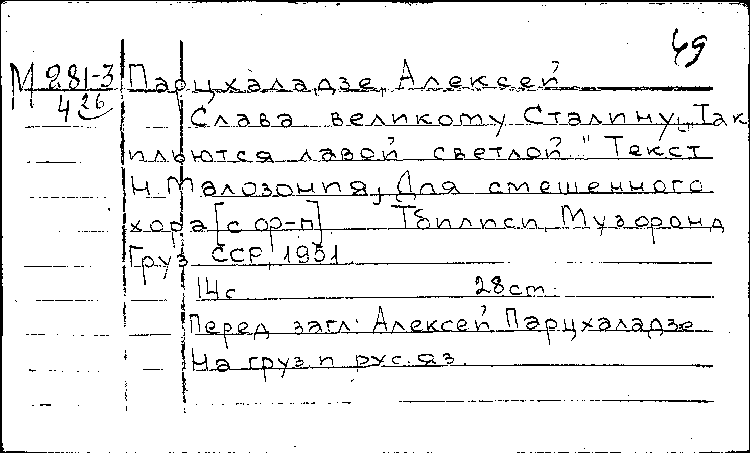 49
М 281-3 Парцхаладзе, Алексей
4 26
Слава великому Сталину "Так
пльются лавой светлой" Текст
Н. Малозомпя, Для смешенного
хора [с ор-п] Тбилиси, Музфонд
Груз. ССР, 1951
14с 28 ст.
Перед загл: Алексей Парцхаладзе
На груз. и рус. яз.